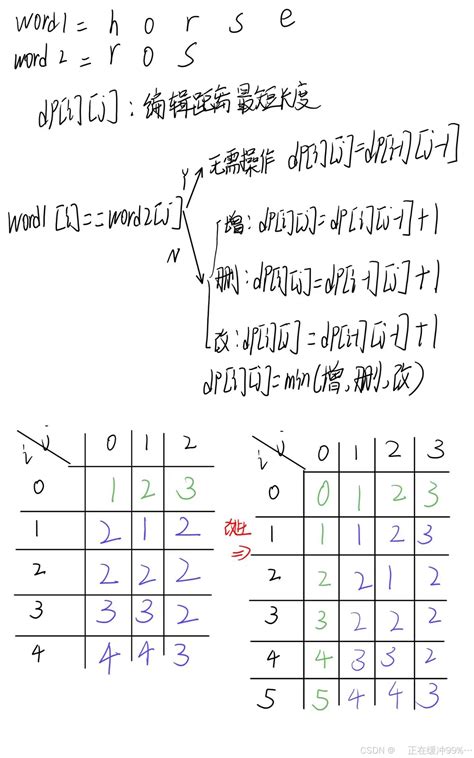 word1 = h o r s e
word2 = r o s
dp[i][j]:编辑距离最短长度
Y 无需操作 dp[i][j]=dp[i-1][j-1]
word1[i]==word2[j] 增:dp[i][j]=dp[i][j-1]+1
N 删:dp[i][j]=dp[i-1][j]+1
改:dp[i][j]=dp[i-1][j-1]+1
dp[i][j]=min(增,删,改)
i j 0 1 2
0 1 2 3
1 2 1 2
2 2 2 2
3 3 3 2
4 4 4 3
⇒
i j 0 1 2 3
0 0 1 2 3
1 1 1 2 3
2 2 2 1 2
3 3 2 2 2
4 4 3 3 2
5 5 4 4 3
CSDN @ 正在缓冲99%…